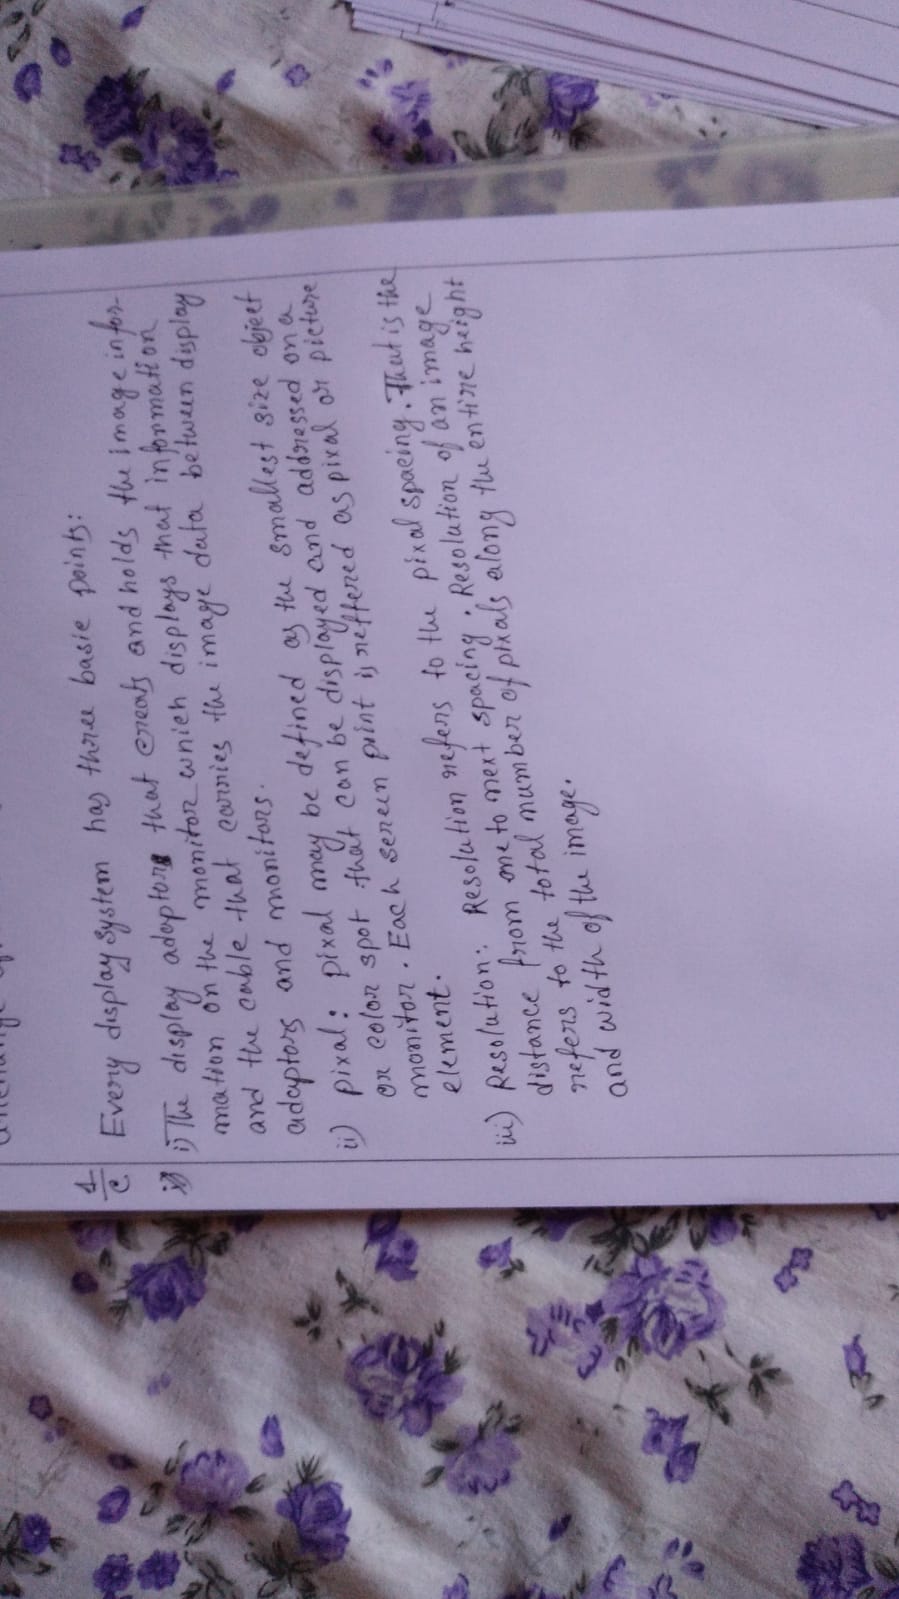 1/c Every display system has three basic points:
i) The display adaptors that creats and holds the image infor-
mation on the monitor which displays that information
and the cable that carries the image data between display
adaptors and monitors.
ii) pixal: pixal may be defined as the smallest size object
or color spot that can be displayed and addressed on a
monitor. Each screen point is reffered as pixal or picture
element.
iii) Resolution: Resolution refers to the pixal spacing. That is the
distance from one to next spacing. Resolution of an image
refers to the total number of pixals along the entire height
and width of the image.